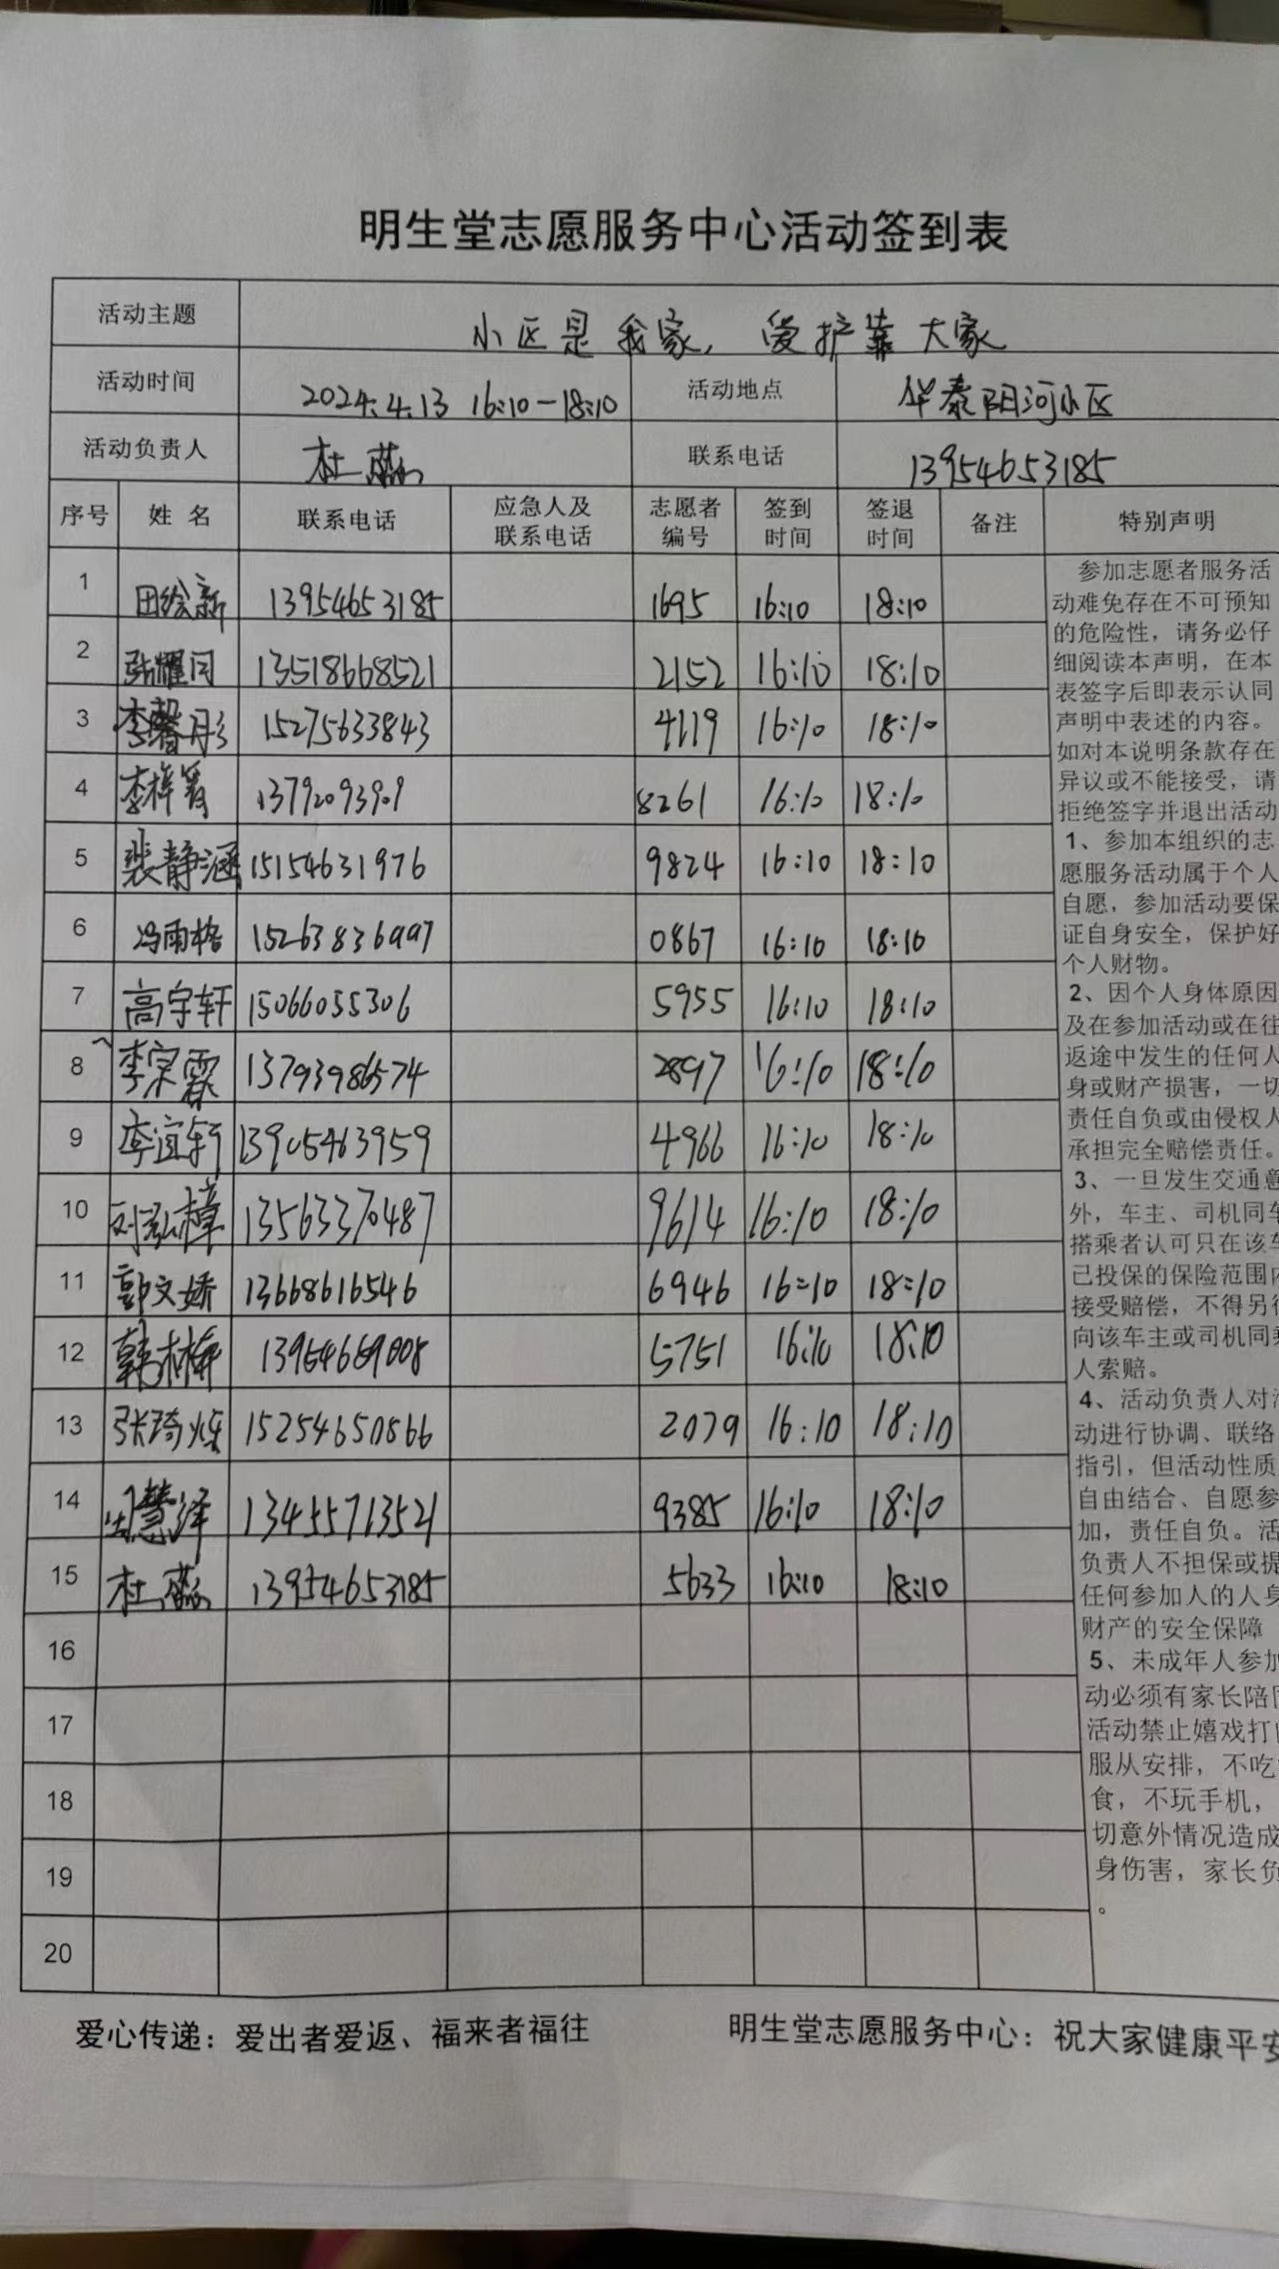 明生堂志愿服务中心活动签到表
活动主题 小区是我家,爱护靠大家
活动时间 2024.4.13 16:10-18:10 活动地点 华泰阳河小区
活动负责人 杜蕊 联系电话 13954653185
序号 姓名 联系电话 应急人及联系电话 志愿者编号 签到时间 签退时间 备注 特别声明
1 田绘新 13954653185 1695 16:10 18:10
2 张耀闫 13518668521 2152 16:10 18:10
3 李馨彤 15275633843 4119 16:10 18:10
4 李梓菁 13792093909 8261 16:10 18:10
5 裴静涵 15154631976 9824 16:10 18:10
6 冯雨格 15263836997 0867 16:10 18:10
7 高宇轩 15066055306 5955 16:10 18:10
8 李宗霖 13793986574 2897 16:10 18:10
9 李谊轩 13905463959 4966 16:10 18:10
10 刘泓樟 13563370487 9614 16:10 18:10
11 郭文娇 13668616546 6946 16:10 18:10
12 韩林梅 13954669008 5751 16:10 18:10
13 张琦烁 15254650866 2079 16:10 18:10
14 田慧泽 13455713521 9385 16:10 18:10
15 杜蕊 13954653185 5633 16:10 18:10
16
17
18
19
20
参加志愿者服务活
动难免存在不可预知
的危险性,请务必仔
细阅读本声明,在本
表签字后即表示认同
声明中表述的内容。
如对本说明条款存在
异议或不能接受,请
拒绝签字并退出活动
1、参加本组织的志
愿服务活动属于个人
自愿,参加活动要保
证自身安全,保护好
个人财物。
2、因个人身体原因
及在参加活动或在往
返途中发生的任何人
身或财产损害,一切
责任自负或由侵权人
承担完全赔偿责任。
3、一旦发生交通意
外,车主、司机同车
搭乘者认可只在该车
已投保的保险范围内
接受赔偿,不得另行
向该车主或司机同乘
人索赔。
4、活动负责人对活
动进行协调、联络
指引,但活动性质
自由结合、自愿参
加,责任自负。活
负责人不担保或提
任何参加人的人身
财产的安全保障
5、未成年人参加
动必须有家长陪同
活动禁止嬉戏打
服从安排,不吃
食,不玩手机,
切意外情况造成
身伤害,家长负
。
爱心传递:爱出者爱返、福来者福往 明生堂志愿服务中心:祝大家健康平安